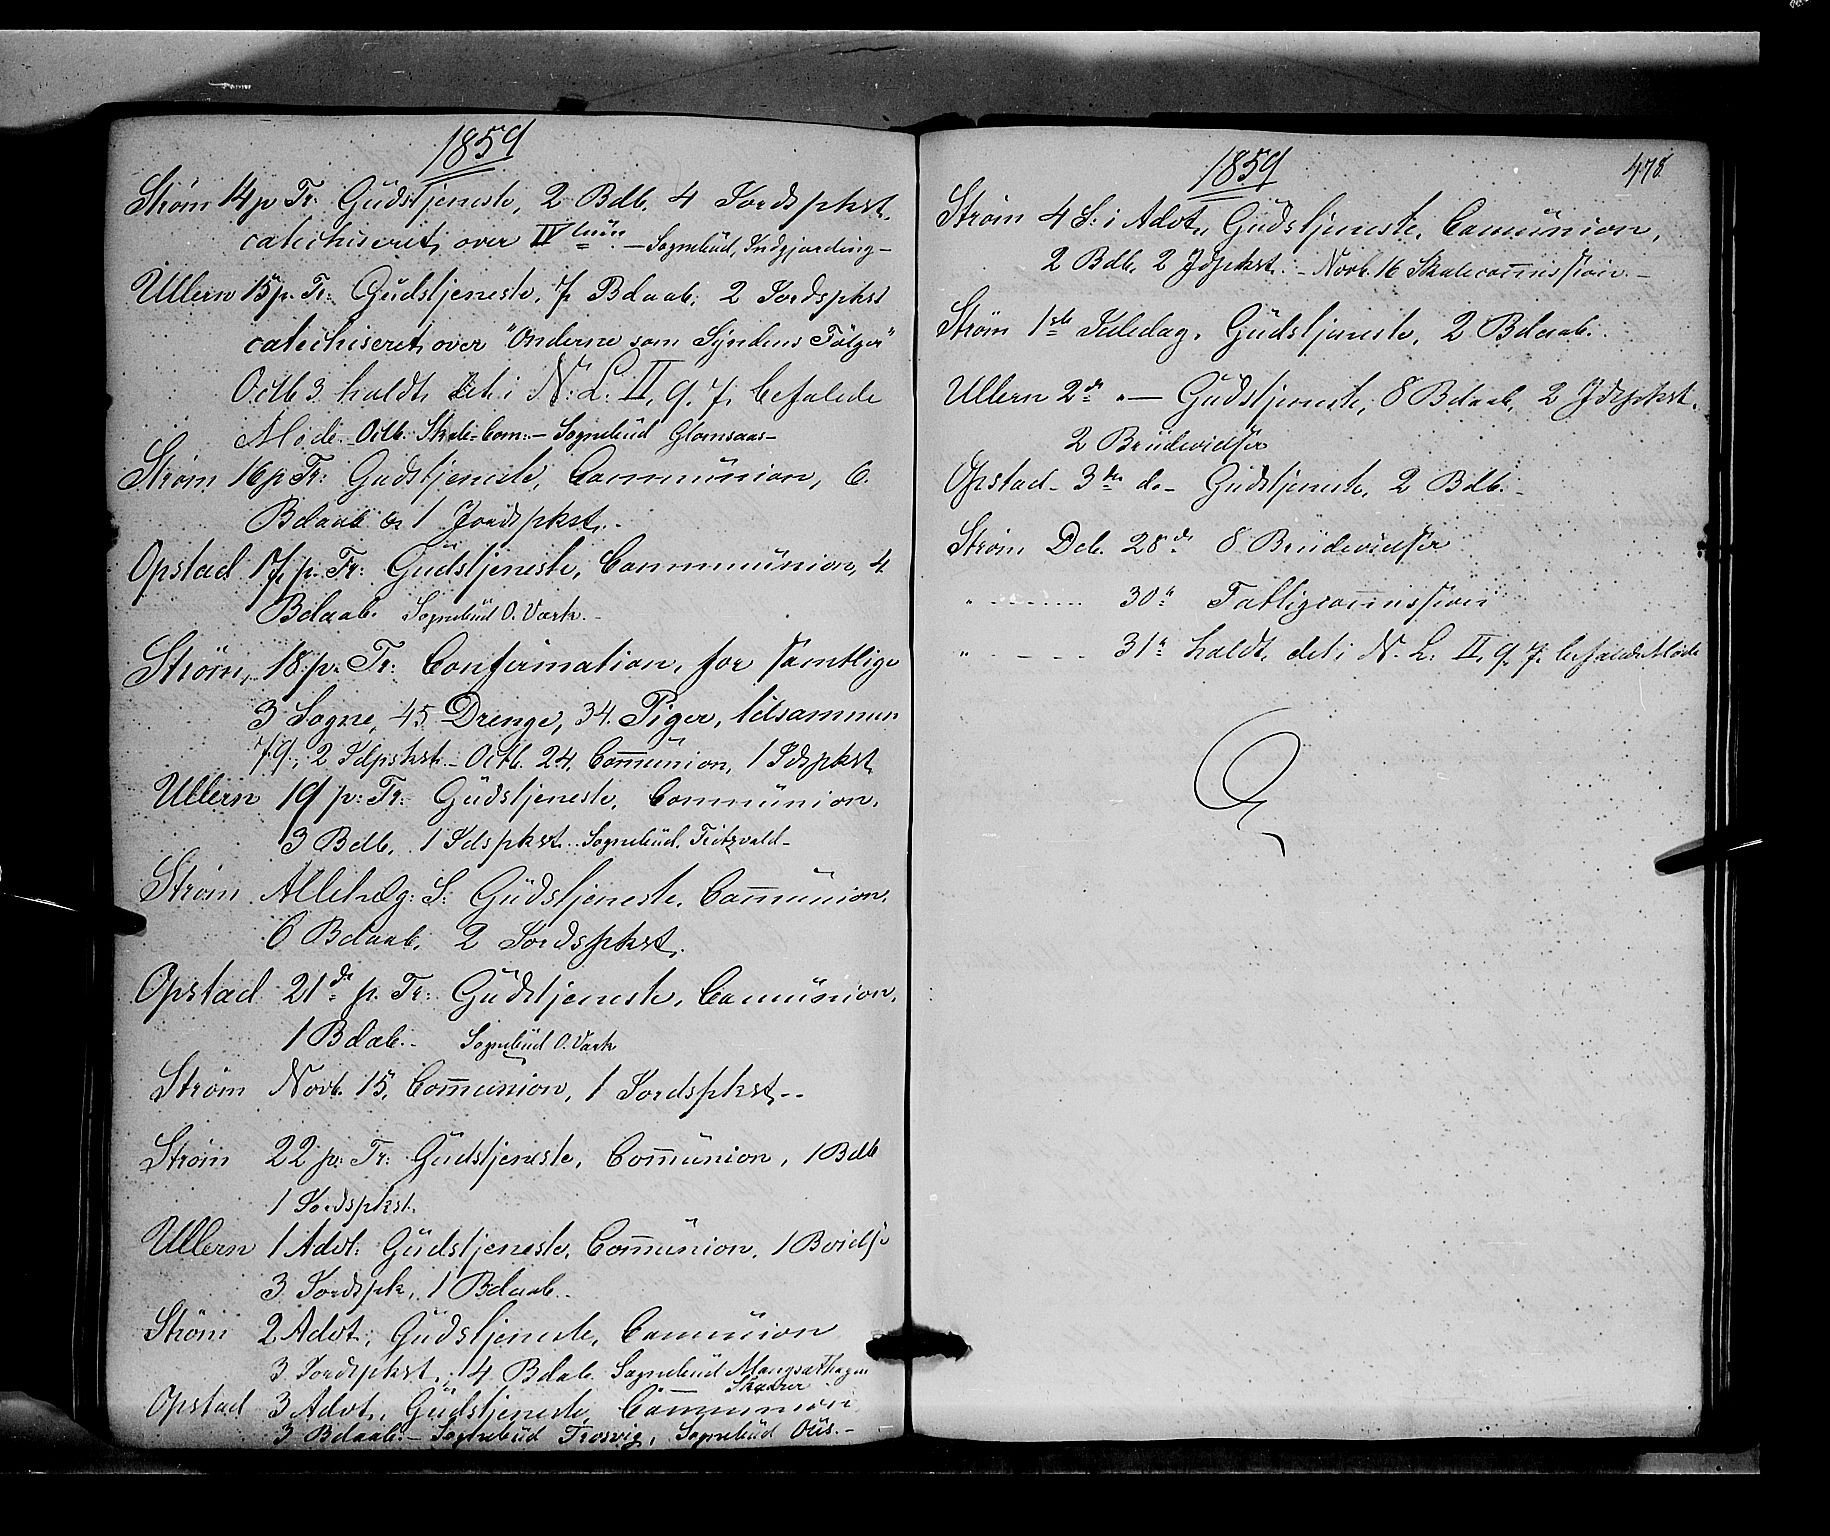 1859
Strøm 14 p. Tr: Gudstjeneste, 2 Bdb. 4 Jordspkst.
catechiseret over IV – Sognebud, Indgjerding –
Ullern 15 p. Tr: Gudstjeneste, 7 Bdaab, 2 Jordspkst
catechiseret over "Onderne som Syndens Følger"
Octb 3. holdt det i N: L: II, 9, 7, befalede
Møde. – Octb. Skole-Com: – Sognebud Glomsaas –
Strøm 16 p Tr: Gudstjeneste, Communion, 6.
Bdaab og 1 Jordspkst. –
Opstad 17, p. Tr: Gudstjeneste, Communion, 4
Bdaab. Sognebud O. Værk. –
Strøm, 18. p. Tr: Confirmation, for samtlige
3 Sogne, 45 Drenge, 34. Piger, tilsammen
79., 2 Jdpskst. – Octb. 24. Com̅union, 1 Jdspkst.
Ullern 19 p: Tr: Gudstjeneste, Communion.
3 Bdb, 1 Jdspkst. Sognebud. Fritzvald –
Strøm Allehelg: S: Gudstjeneste. Com̅union.
6 Bdaab, 2 Jordspkst.
Opstad 21de p. Tr: Gudstjeneste, Com̅union.
1 Bdab. – Sognebud O. Værk
Strøm Novb. 15, Com̅union, 1 Jordspkst. –
Strøm 22 p: Tr: Gudstjeneste, Com̅union, 1 Bdb
1 Jordspkst.
Ullern 1 Advt: Gudstjeneste, Com̅union, 1 Bvidse
3 Jordspk, 1 Bdaab. –
Strøm 2 Advt, Gudstjeneste, Com̅union
3 Jordspkst, 4 Bdab. Sognebud Mangsethagen
Skarer
Opstad 3 Advt, Gudstjeneste, Com̅union
3 Bdaab. – Sognebud Trosvig, Sognebud Ous. –
1859
478
Strøm 4 S: i Advt, Gudstjeneste, Com̅union,
2 Bdb, 2 Jdspkst. – Novb. 16 Skolecom̅ission –
Strøm 1ste Juledag, Gudstjeneste, 2 Bdaab. –
Ullern 2d " — Gudstjeneste, 8 Bdaab, 2 Jdspkst.
2 Brudevidser
Opstad – 3die do – Gudstjeneste, 2 Bdb. –
Strøm Dcb. 28de 8 Brudevidser
" – – – – 30te Fattigcom̅ission
" – – – – 31te holdt det i N. L: II, 9, 7, befalede Møde